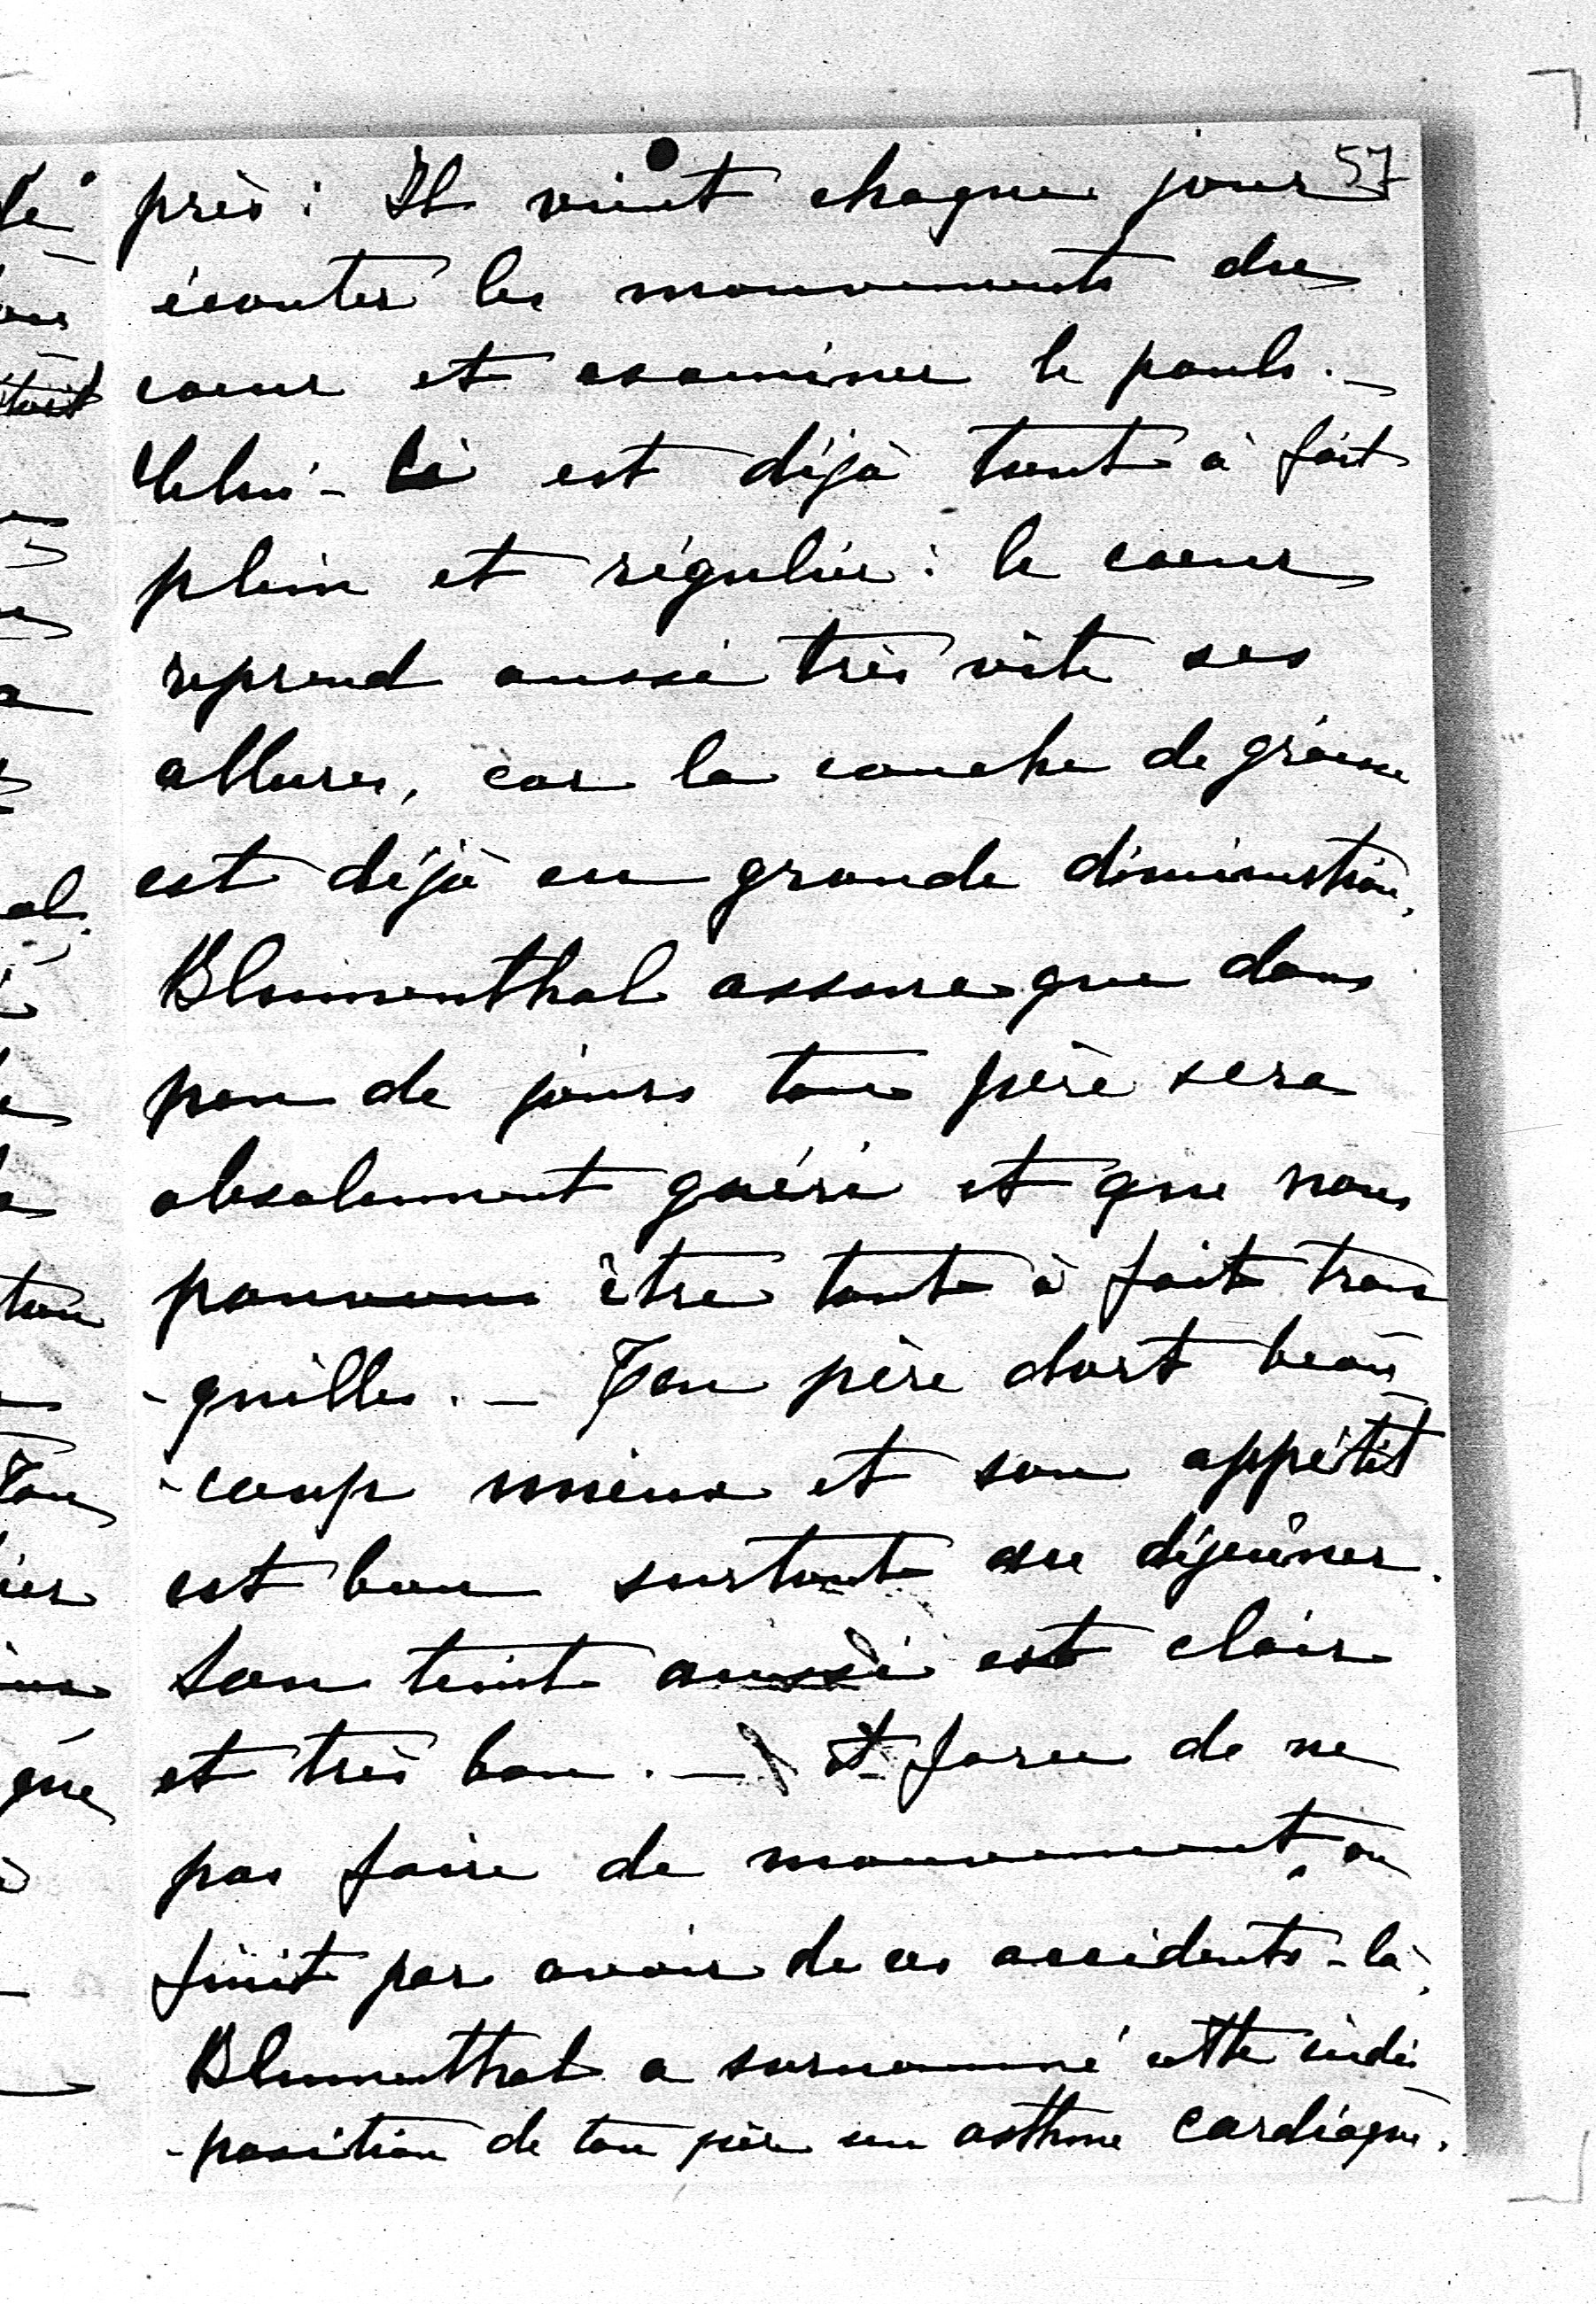 57
près : Il vient chaque jour
écouter les mouvements du
coeur et examiner le pouls. —
Celui-ci est déjà tout à fait
plein et régulier : le coeur
reprend aussi très vite ses
allures, car la couche de graisse
est déjà en grande diminution.
Blumenthal assure que dans
peu de jours ton père sera
absolument guéri et que nous
pouvons être tout à fait tran
-quilles. — Ton père dort beau
-coup mieux et son appétit
est bon surtout au déjeûner.
Son teint aussi est clair
et très bon. — A force de ne
pas faire de mouvement, on
finit par avoir de ces accidents-là.
Blumenthal a surnommé cette indis
-position de ton père un asthme cardiaque.